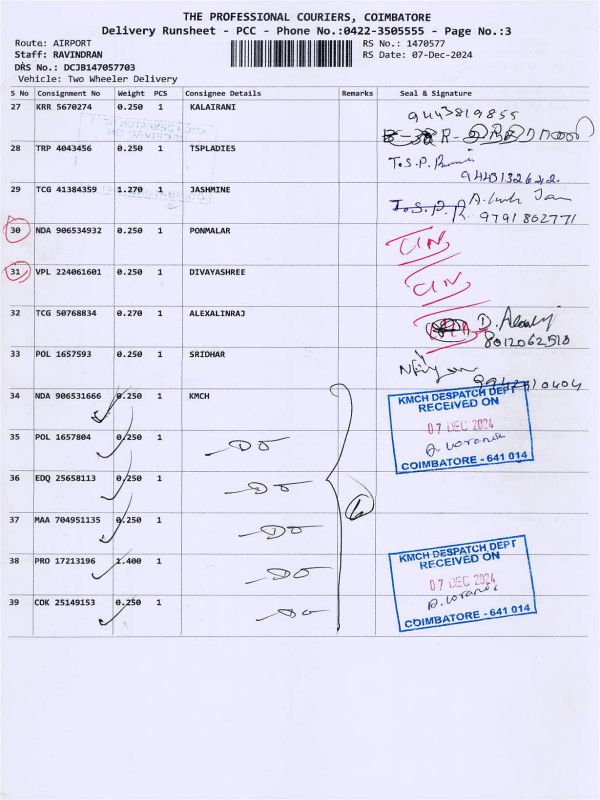 THE PROFESSIONAL COURIERS, COIMBATORE
Delivery Runsheet - PCC - Phone No.:0422-3505555 - Page No.:3
Route: AIRPORT RS No.: 1470577
Staff: RAVINDRAN RS Date: 07-Dec-2024
DRS No.: DCJB147057703
Vehicle: Two Wheeler Delivery
S No Consignment No Weight PCS Consignee Details Remarks Seal & Signature
27 KRR 5670274 0.250 1 KALAIRANI 9443819855
28 TRP 4043456 0.250 1 TSPLADIES T.S.P.
29 TCG 41384359 1.270 1 JASHMINE
9791802771
30 NDA 906534932 0.250 1 PONMALAR CIN
31 VPL 224061601 0.250 1 DIVAYASHREE CIN
32 TCG 50768834 0.270 1 ALEXALINRAJ
8012062518
33 POL 1657593 0.250 1 SRIDHAR
34 NDA 906531666 0.250 1 KMCH
KMCH DESPATCH DEPT
RECEIVED ON
07 DEC 2024
COIMBATORE - 641 014
35 POL 1657804 0.250 1 Do
36 EDQ 25658113 0.250 1 Do
37 MAA 704951135 0.250 1 Do
38 PRO 17213196 1.400 1 Do
39 COK 25149153 0.250 1 Do
6
KMCH DESPATCH DEPT
RECEIVED ON
07 DEC 2024
COIMBATORE - 641 014